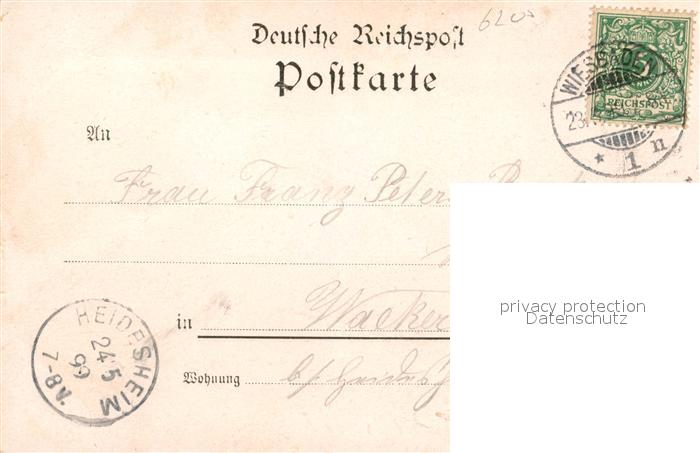 6200
Deutsche Reichspost
Postkarte
WIESBADEN
23
* 1 n
5
REICHSPOST
An
Frau Franz Peter
in Wacker
privacy protection
Datenschutz
Wohnung b/Heidesh
HEIDESHEIM
24 5
99
7-8 N.